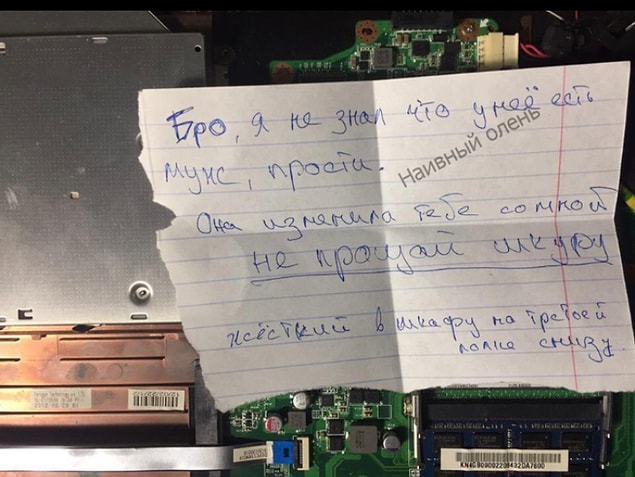 Бро, я не знал что у неё есть
муж, прости.
Наивный олень
Она изменила тебе со мной
не прощай шкуру
жёсткий в шкафу на третьей
полке снизу.